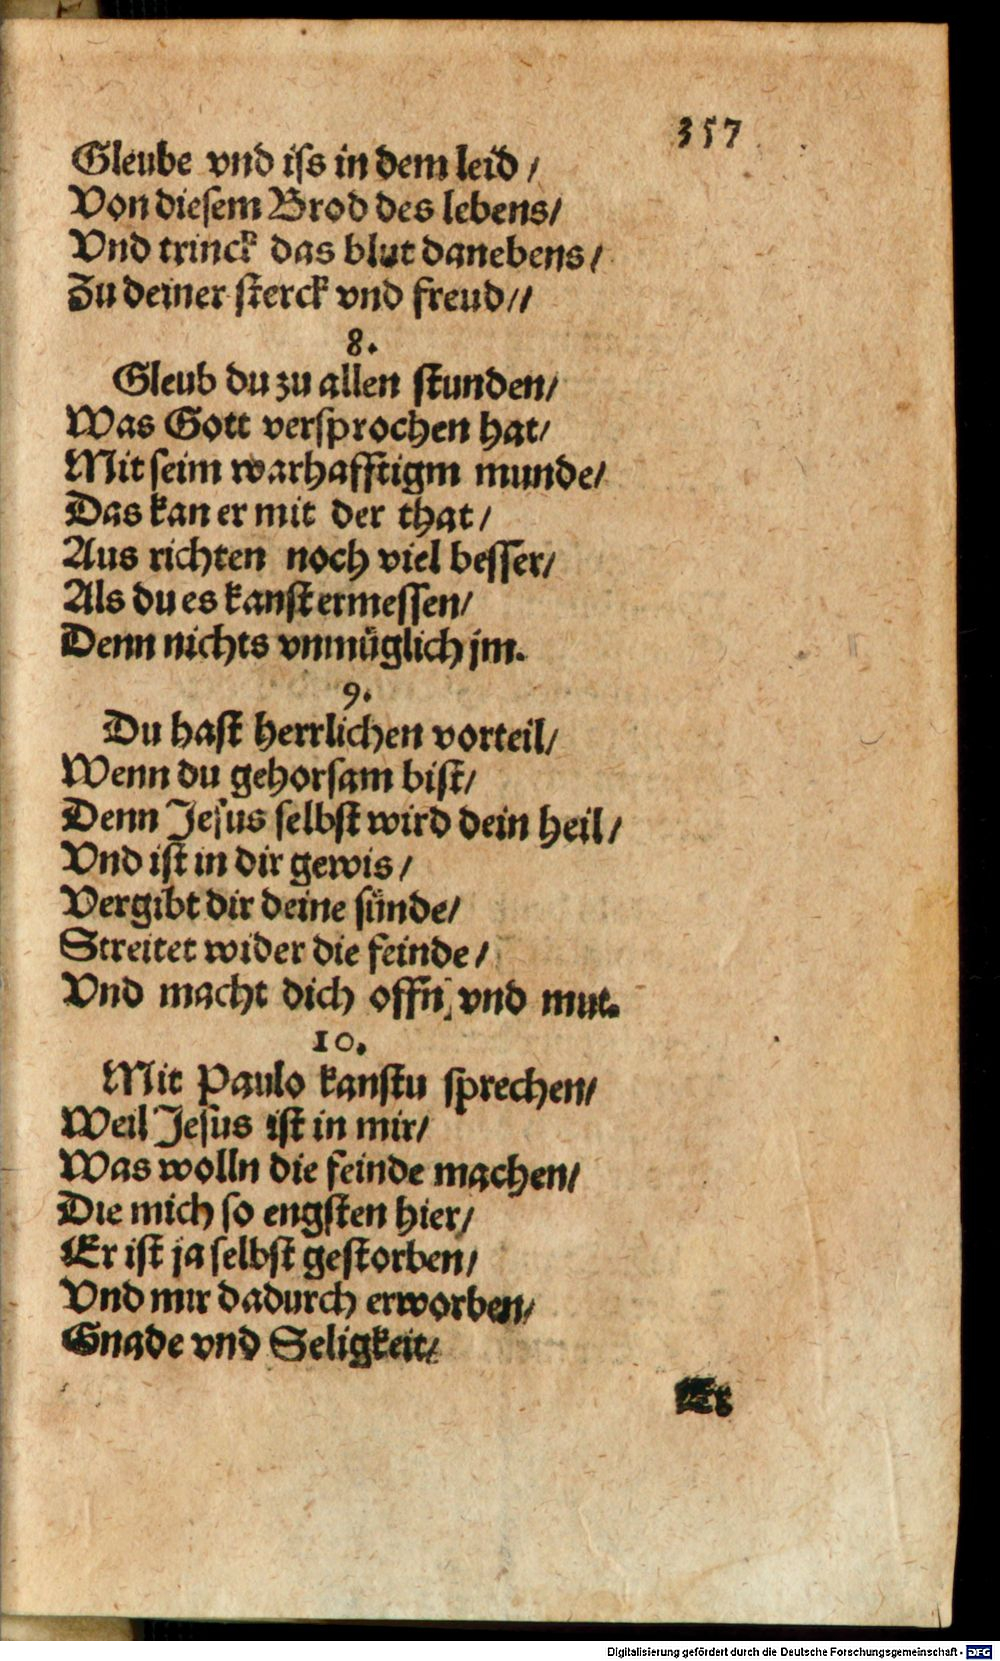 357
Gleube vnd iſs in dem leid /
Von dieſem Brod des lebens/
Vnd trinck das blut danebens /
Zu deiner ſterck vnd freud //
8.
Gleub du zu allen ſtunden/
Was Gott verſprochen hat/
Mit ſeim warhafftigm munde/
Das kan er mit der that /
Aus richten noch viel beſſer/
Als du es kanſt ermeſſen/
Denn nichts vnmüglich jm.
9.
Du haſt herrlichen vorteil/
Wenn du gehorſam biſt/
Denn Jeſus ſelbſt wird dein heil /
Vnd iſt in dir gewis /
Vergibt dir deine ſünde/
Streitet wider die feinde /
Vnd macht dich offn vnd mut.
10.
Mit Paulo kanſtu ſprechen/
Weil Jeſus iſt in mir/
Was wolln die feinde machen/
Die mich ſo engſten hier/
Er iſt ja ſelbſt geſtorben/
Vnd mir dadurch erworben/
Gnade vnd Seligkeit/
Er
Digitalisierung gefördert durch die Deutsche Forschungsgemeinschaft - DFG